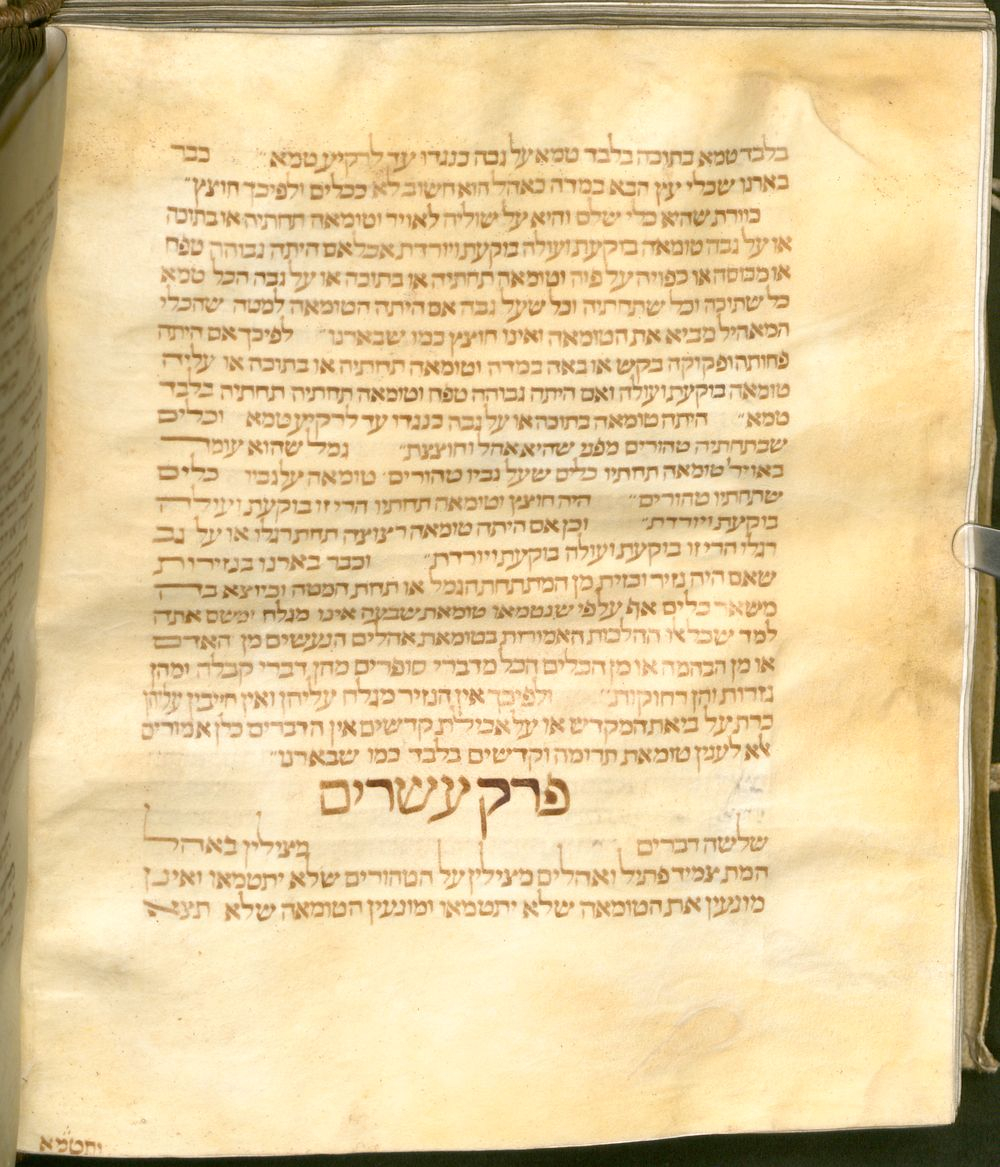 בלבד טמא בתוכה בלבד טמא על גבה כנגדו עד לרקיע טמא״ כבר
בארנו שכלי עץ הבא במדה כאהל הוא חשוב לא ככלים ולפיכך חוצץ״
כוורת שהיא כלי שלם והיא על שוליה לאויר וטומאה תחתיה או בתוכה
או על גבה טומאה בוקעת ועולה בוקעת ויורדת אבל אם היתה גבוהה טפח
או מכוסה או כפויה על פיה וטומאה תחתיה או בתוכה או על גבה הכל טמא
כל שתוכה וכל שתחתיה וכל שעל גבה אם היתה הטומאה למטה שהכלי
המאהיל מביא את הטומאה ואינו חוצץ כמו שבארנו״ לפיכך אם היתה
פחותה ופקוקה בקש או באה במדה וטומאה תחתיה או בתוכה או עליה
טומאה בוקעת ועולה ואם היתה גבוהה טפח וטומאה תחתיה תחתיה בלבד
טמא״ היתה טומאה בתוכה או על גבה כנגדו עד לרקיע טמא וכלים
שבתחתיה טהורים מפני שהיא אהל וחוצצת״ גמל שהוא עומד
באויר טומאה תחתיו כלים שעל גביו טהורים טומאה על גביו כלים
שתחתיו טהורים״ היה חוצץ וטומאה תחתיו הרי זו בוקעת ועולה
בוקעת ויורדת״ וכן אם היתה טומאה רצוצה תחת רגלו או על גב
רגלו הרי זו בוקעת ועולה בוקעת ויורדת״ וכבר בארנו בנזירות
שאם היה נזיר וכזית מן המת תחת הגמל או תחת המטה וכיוצא בה
משאר כלים אף על פי שנטמאו טומאת שבעה אינו מגלח ומשם אתה
למד שכל או ההלכות האמורות בטומאת אהלים הנעשים מן האדם
או מן הבהמה או מן הכלים הכל מדברי סופרים מהן דברי קבלה ומהן
גזרות והן רחוקות״ ולפיכך אין הנזיר מגלח עליהן ואין חייבין עליהן
כרת על ביאת המקדש או על אכילת קדשים אין הדברים כלן אמורים
לא לענין טומאת תרומה וקדשים בלבד כמו שבארנו״
פרק עשרים
שלשה דברים מצילין באהל
המת צמיד פתיל ואהלים מצילין על הטהורים שלא יתטמאו ואינן
מונעין את הטומאה שלא יתטמאו ומונעין הטומאה שלא תצא
ותטמא